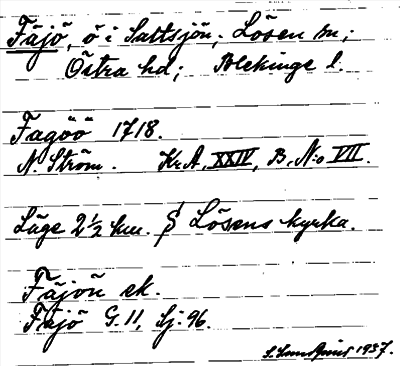 Fäjö, ö i Saltsjön; Lösen sn;
Östra hd; Blekinge l.
Fagöö 1718.
N. Ström. Kr.A, XXIV, B, N:o VII.
Läge 2 1/2 km. S Lösens kyrka.
Fäjön ek.
Fäjö G. 11, Sj. 96.
1937.